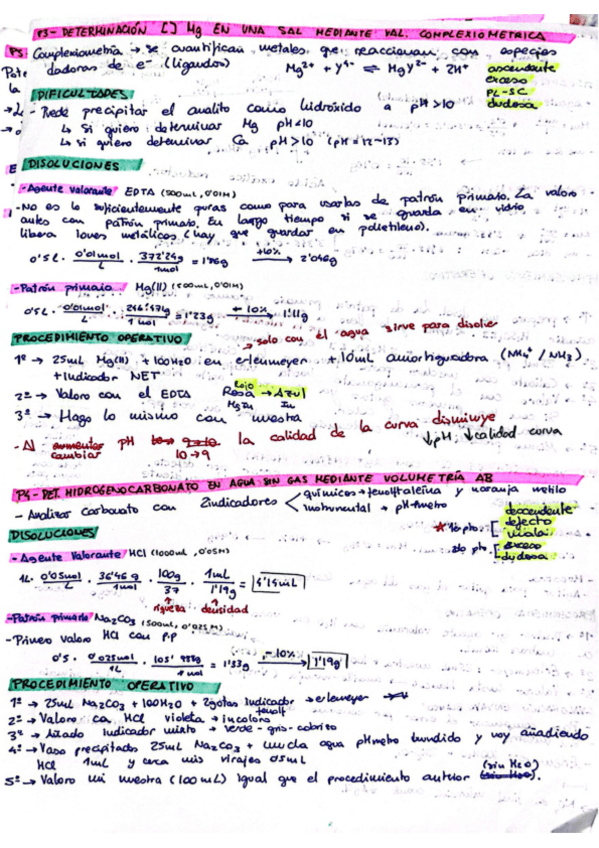 P3- DETERMINACIÓN [] Mg EN UNA SAL MEDIANTE VAL. COMPLEXIOMETRICA
Complexiometría → se cuantifican metales que reaccionan con especies
dadoras de e- (ligandos) Mg2+ + Y4- ⇌ MgY2- + 2H+ ascendente
exceso
PL-SC
dudosa
DIFICULTADES
- Puede precipitar el analito como hidróxido a pH>10
↳ Si quiero determinar Mg pH<10
↳ Si quiero determinar Ca pH>10 (pH=12-13)
DISOLUCIONES
- Agente valorante EDTA (500mL, 0'01M)
- No es lo suficientemente puras como para usarlas de patrón primario. La valoro
antes con patrón primario. En largo tiempo si se guarda en vidrio
libera iones metálicos (hay que guardar en polietileno).
0'5L · 0'01mol/L · 372'24g/1mol = 1'86g +10% → 2'046g
- Patrón primario Mg(II) (500mL, 0'01M)
0'5L · 0'01mol/L · 246'47g/1mol = 1'23g -10% → 1'11g
PROCEDIMIENTO OPERATIVO → solo con él agua sirve para disolver
1º → 25mL Mg(II) + 100H2O en erlenmeyer + 10mL amortiguadora (NH4+ / NH3)
+ Indicador NET
2º → Valoro con el EDTA Rojo Rosa → Azul
MgIn In
3º → Hago lo mismo con muestra
- Al aumentar cambiar pH 10→9 la calidad de la curva disminuye ↓pH, ↓calidad curva
P4- DET. HIDROGENOCARBONATO EN AGUA SIN GAS MEDIANTE VOLUMETRÍA AB
- Analizar carbonato con 2 indicadores < químicos → fenolftaleína y naranja metilo
instrumental → pH-metro
* 1o pto. [ descendente
defecto
mala
2do pto. [ exceso
dudosa
DISOLUCIONES
- Agente Valorante HCl (1000mL, 0'05M)
1L · 0'05mol/L · 36'46g/1mol · 100g/37 · 1mL/1'19g = 4'14mL
riqueza densidad
- Patrón primario Na2CO3 (500mL, 0'025M)
- Primero valoro HCl con P.P
0'5 · 0'025mol/1L · 105'988g/1mol = 1'33g -10% → 1'19g
PROCEDIMIENTO OPERATIVO
1º → 25mL Na2CO3 + 100H2O + 2gotas Indicador fenolf → erlenmeyer
2º → Valoro ca HCl violeta → incoloro
3º → Añado Indicador mixto → verde - gris - cobrizo
4º → Vaso precipitado 25mL Na2CO3 + mucha agua pHmetro hundido y voy añadiendo
HCl 1mL y cerca mis virajes 0'5mL
5º → Valoro mi muestra (100mL) Igual que el procedimiento anterior (sin H2O)